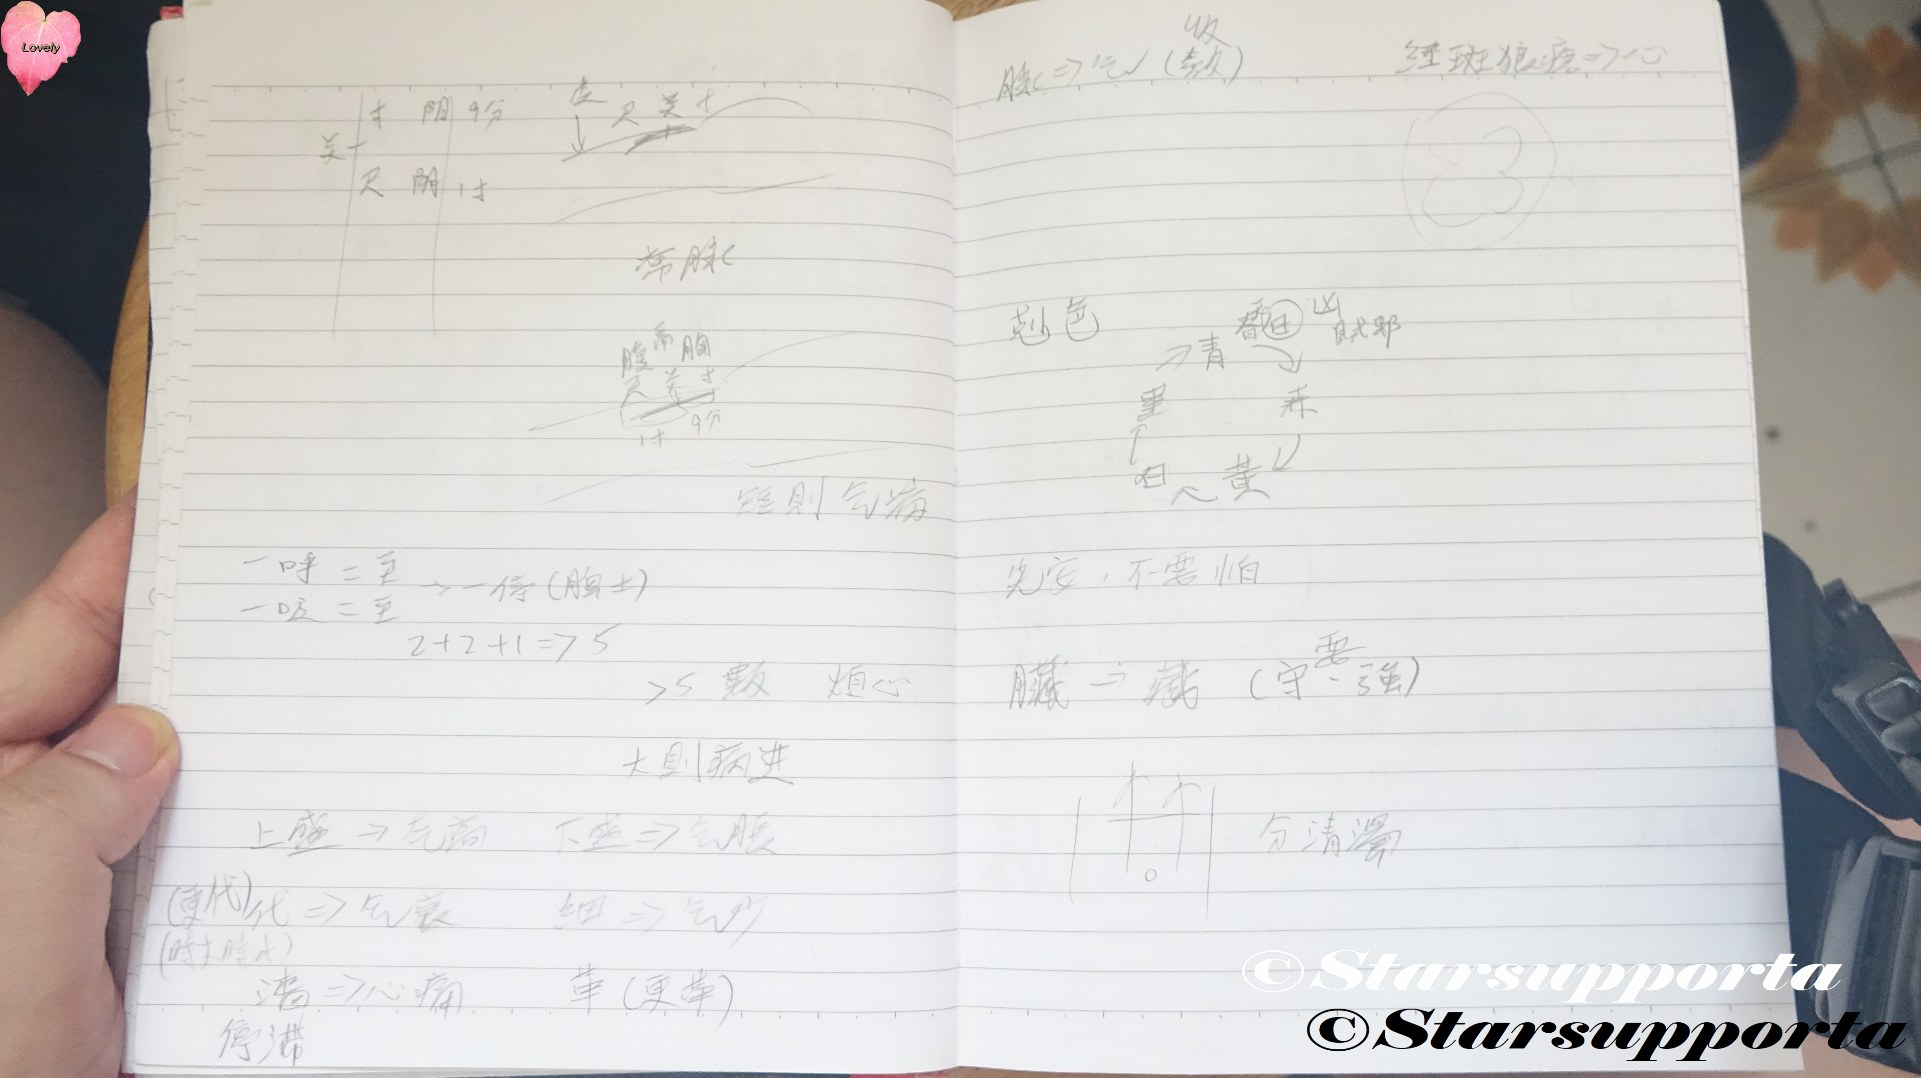 Lovely
寸 阴 9分
关
尺 阴 1寸
尺 关 寸
常脉
腹 膈 胸
尺 关 寸
1寸 9分
短則气病
一呼二至
一吸二至
→一停(胸士)
2+2+1=>5
>5 数 烦心
大則病进
上盛=>气高 下盛=>气胀
(更代)代=>气衰 細=>气少
(時大時小)
濇=>心痛 革(更革)
停滞
脉=>气(数)
収
红斑狼疮=>心
剋色
凶
賊邪
青
黑
赤
白
黄
先安,不要怕
臟=>藏(守、强)
要
分清濁
©Starsupporta
©Starsupporta